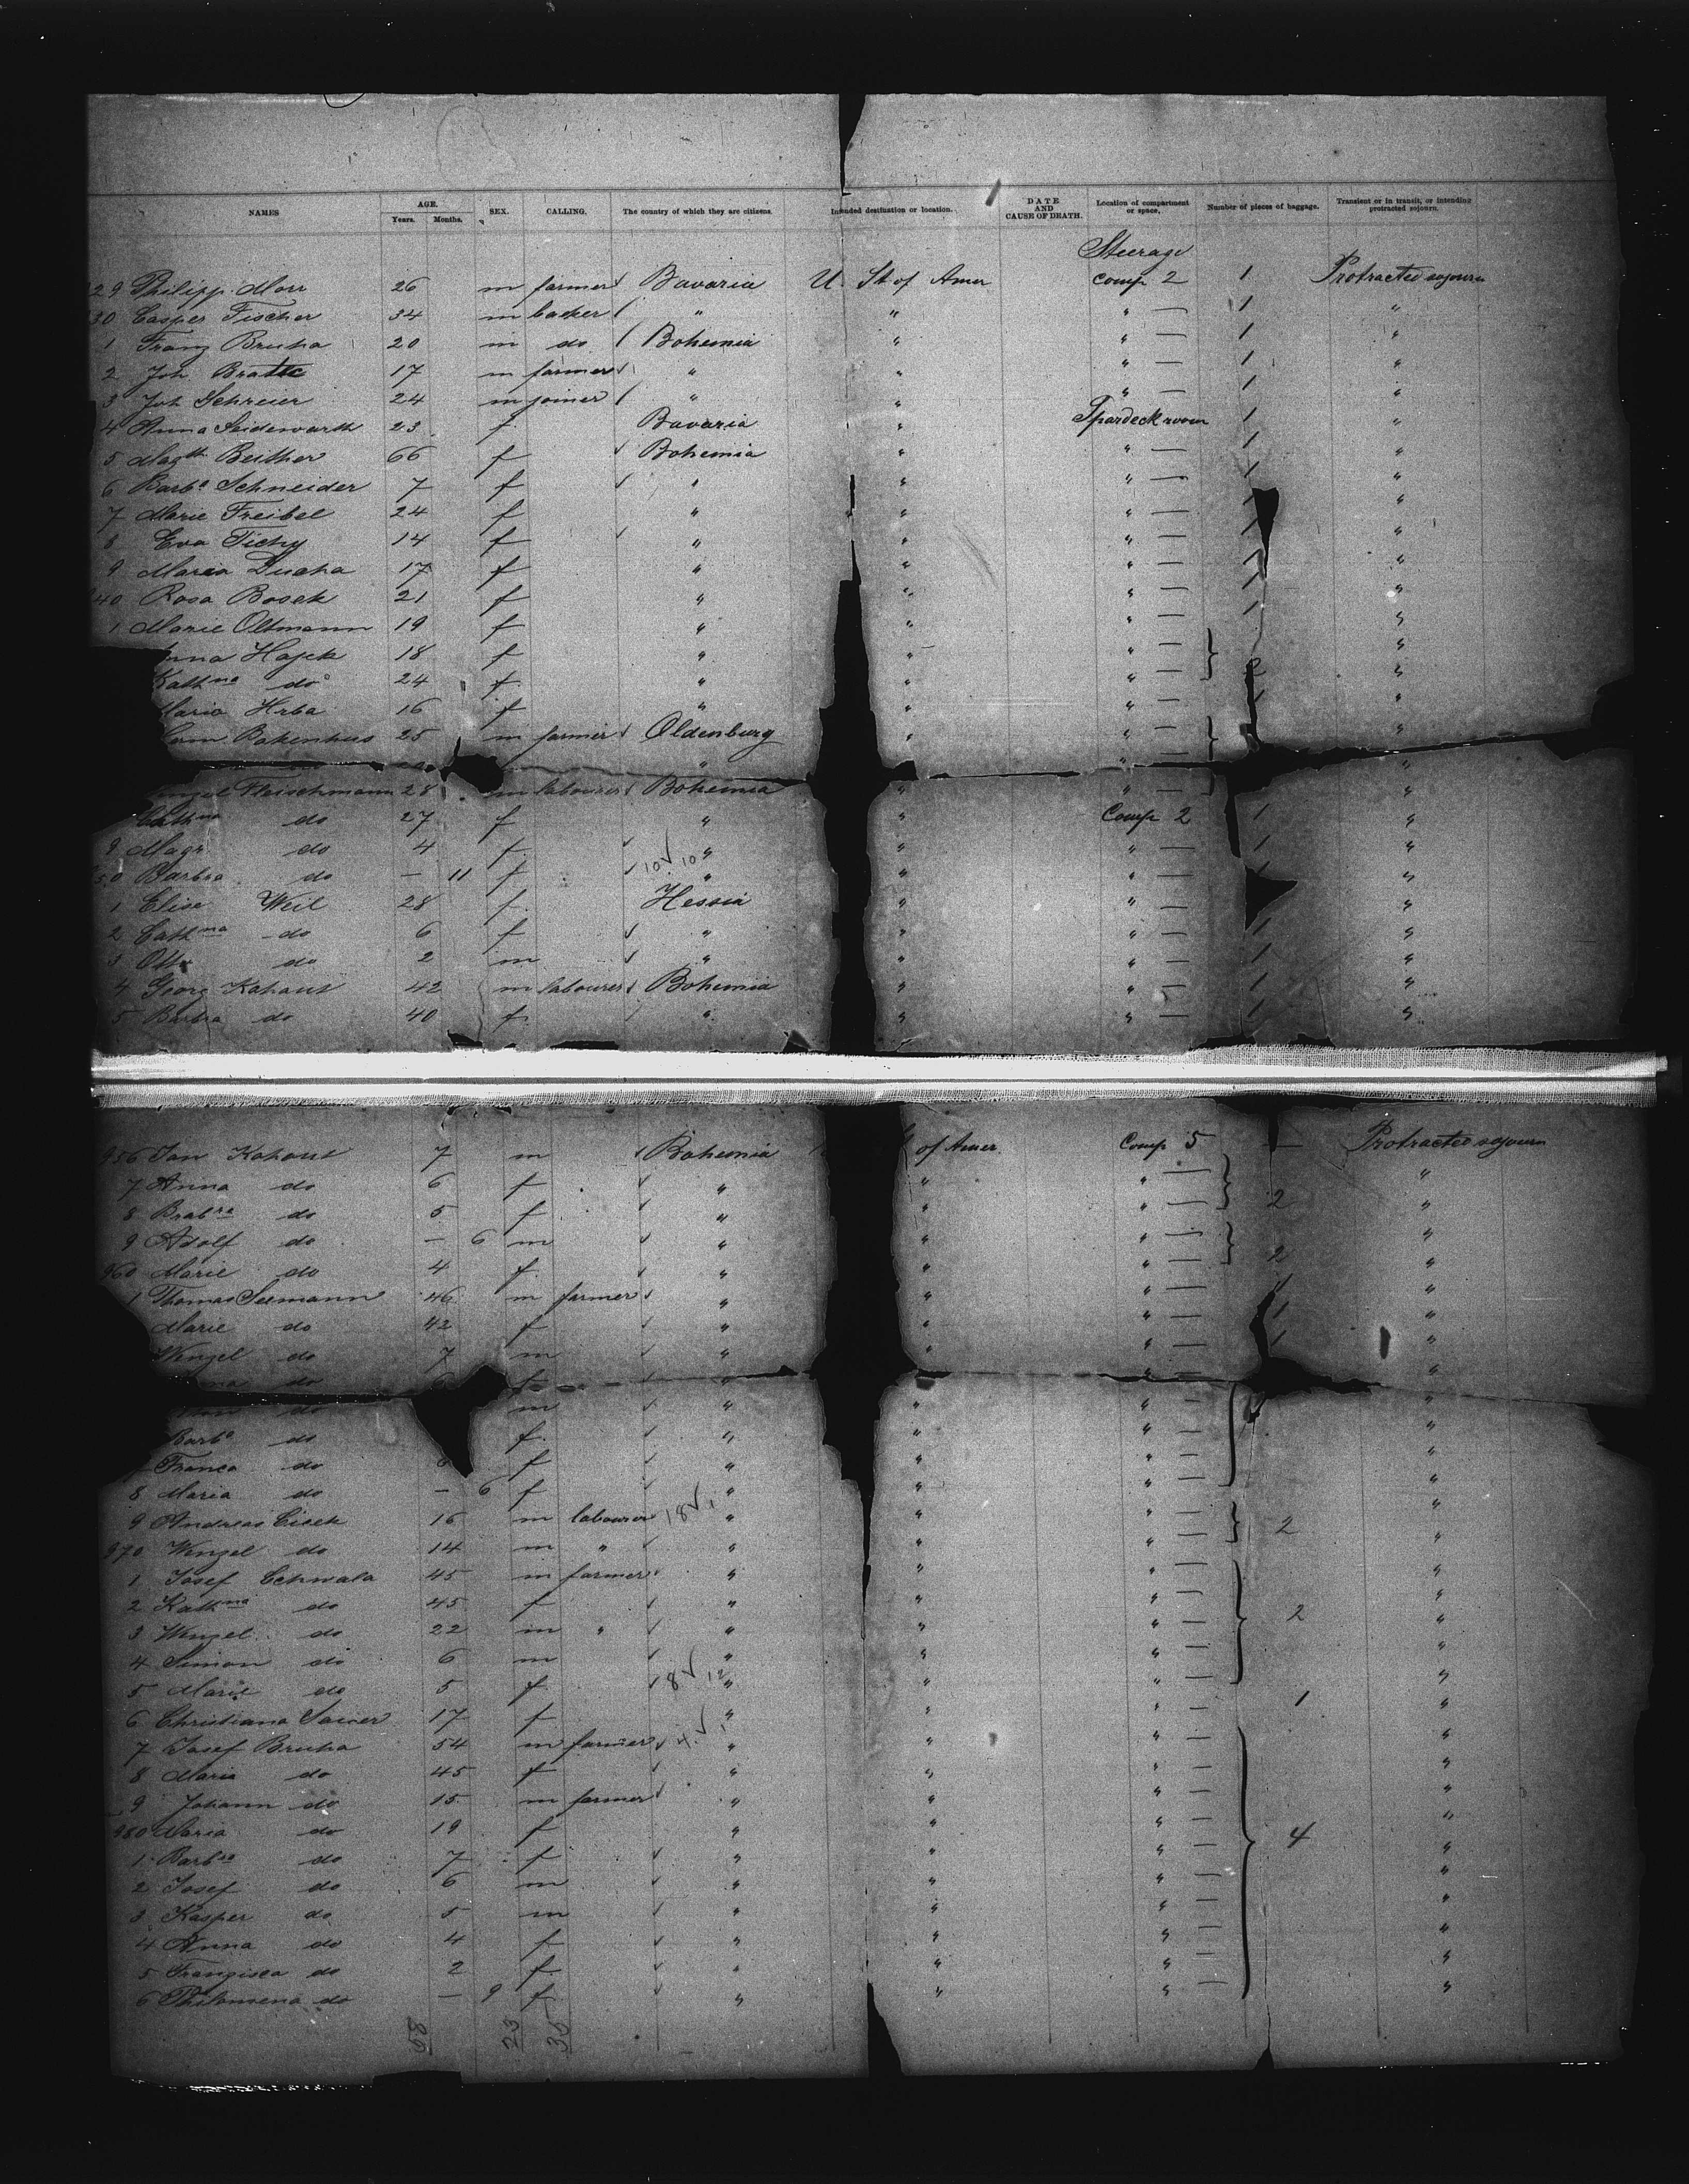 NAMES AGE. Years. Months. SEX. CALLING. The country of which they are citizens. Intended destination or location. DATE AND CAUSE OF DEATH. Location of compartment or space. Number of pieces of baggage. Transient or in transit, or intending protracted sojourn.
Steerage
29 Philipp Morr 26 m farmer Bavaria U St of Amer Comp 2 1 Protracted sojourn
30 Casper Fischer 34 m backer " " " — 1 "
1 Franz Bruha 20 m do Bohemia " " — 1 "
2 Joh 17 m farmer " " " — 1 "
3 Joh Schreier 24 m joiner " " " — 1 "
4 Anna Seidewarth 23 f Bavaria " Spardeck room 1 "
5 Magth Beither 66 f Bohemia " " — 1 "
6 Barba Schneider 7 f " " " — 1 "
7 Marie Freibel 24 f " " " — 1 "
8 Eva Tichy 14 f " " " — 1 "
9 Maria Ducha 17 f " " " — 1 "
40 Rosa Bosek 21 f " " " — 1 "
1 Marie Oltmann 19 f " " " — 1 "
Anna Hajek 18 f " " " — "
Kathna do 24 f " " " — 2 "
Maria Hrba 16 f " " " — 1 "
Bakenhus 25 m farmer Oldenburg " " — "
" " "
Fleischmann 28 m labourer Bohemia " " — "
Cathna do 27 f " " Comp 2 1 "
9 Magr do 4 f " " " — 1 "
50 Barbra do — 11 f 10 √ 10 " " " — 1 "
1 Elise Weil 28 f Hessia " " — "
2 Cathna do 6 f " " " — 1 "
3 Otto do 2 m " " " — 1 "
4 Georg Kohaut 42 m labourer Bohemia " " — 1 "
5 Barbra do 40 f " " " — 1 "
956 Jan Kohaut 7 m Bohemia of Amer Comp 5 — Protracted sojourn
7 Anna do 6 f " " " — "
8 Brabra do 5 f " " " — 2 "
9 Adolf do — 6 m " " " — "
960 Marie do 4 f " " " — 2 "
1 Thomas Seemann 46 m farmer " " " — 1 "
Marie do 42 f " " " — 1 "
Wenzel do 7 m " " " — 1 "
do 6 f " " "
do m " " " — "
Barba do f " " " — "
Franca do 6 f " " " — "
8 Maria do — 6 f " " " — "
9 Andreas Cisek 16 m labourer 18 √ 1 " " " — 2 "
970 Wenzel do 14 m " " " " — "
1 Josef Cchwala 45 m farmer " " " — "
2 Kathna do 45 f " " " — 2 "
3 Wenzel do 22 m " " " " — "
4 Simon do 6 m " " " — "
5 Marie do 5 f 8 √ 12 " " " — "
6 Christiana 17 f " " " — 1 "
7 Josef Bruha 54 m farmer 4 √ 1 " " " — "
8 Maria do 45 f " " " — "
9 Johann do 15 m farmer " " " — "
980 Maria do 19 f " " " — 4 "
1 Barbra do 7 f " " " — "
2 Josef do 6 m " " " — "
3 Kasper do 5 m " " " — "
4 Anna do 4 f " " " — "
5 Franzisca do 2 f " " " — "
6 Philomena do — 9 f " " " — "
58 23 35